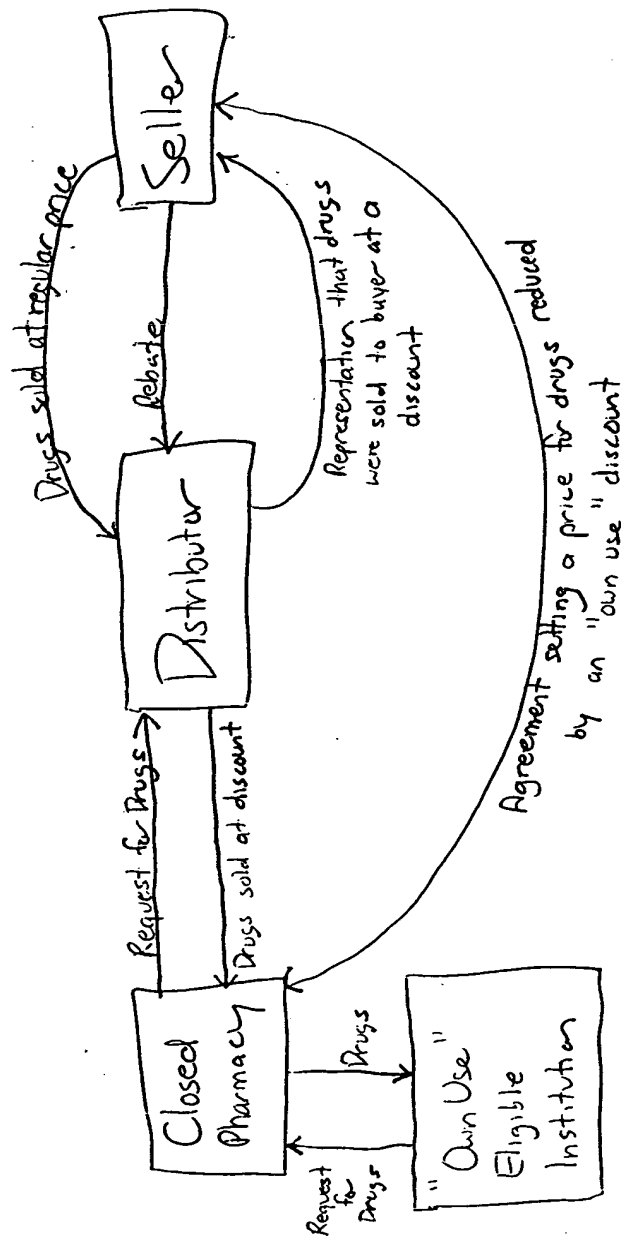 Drugs sold at regular price
Seller
Rebate
Representation that drugs
were sold to buyer at a
discount
Distributor
Request for Drugs
Drugs sold at discount
Agreement setting a price for drugs reduced
by an "own use" discount
Closed
Pharmacy
Drugs
Request
for
Drugs
"Own Use"
Eligible
Institution